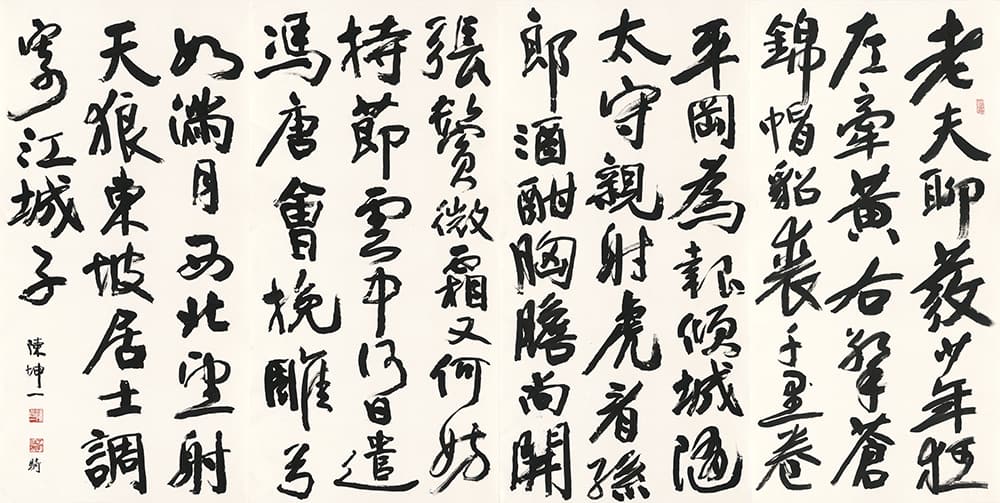 老夫聊發少年狂
左牽黃右擎蒼
錦帽貂裘千里卷
平岡為報傾城隨
太守親射虎看孫
郎酒酣胸膽尚開
張鬢微霜又何妨
持節雲中何日遣
馮唐會挽雕弓
如滿月西北望射
天狼東坡居士調
寄江城子
陳坤一
騎